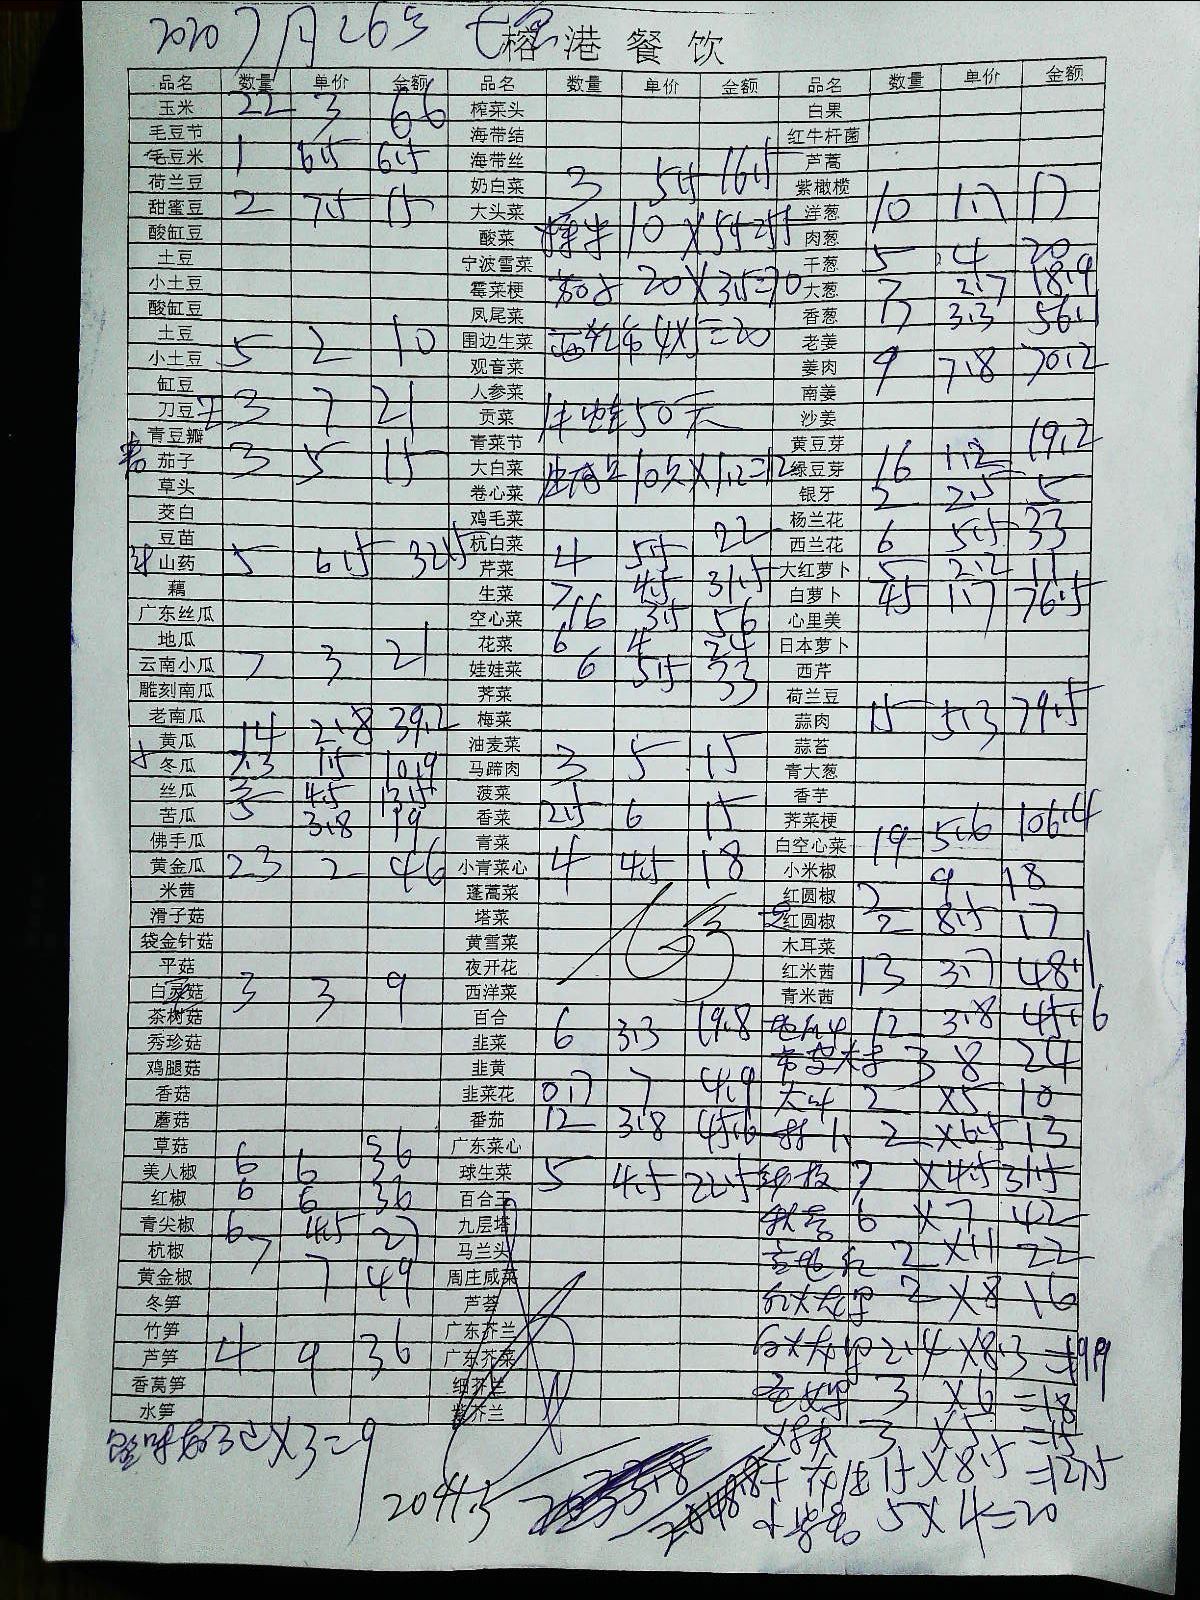 2020 7月26号
榕港餐饮
品名 数量 单价 金额 品名 数量 单价 金额 品名 数量 单价 金额
玉米 22 3 66 榨菜头 白果
毛豆节 海带结 红牛杆菌
毛豆米 1 6.5 6.5 海带丝 芦蒿
荷兰豆 奶白菜 3 5.5 16.5 紫橄榄
甜蜜豆 2 7.5 15 大头菜 洋葱 10 1.7 17
酸缸豆 酸菜 10 X 5.5 肉葱
土豆 宁波雪菜 干葱 5 4 20
小土豆 霉菜梗 茄子 20 X 3.5=70 大葱 7 2.7 18.9
酸缸豆 凤尾菜 香葱 17 3.3 56.1
土豆 围边生菜 4X5=20 老姜
小土豆 5 2 10 观音菜 姜肉 9 7.8 70.2
缸豆 人参菜 南姜
刀豆 3 7 21 贡菜 牛蛙50元 沙姜
青豆瓣 青菜节 黄豆芽
茄子 3 5 15 大白菜 10 X 1.2=12 绿豆芽 16 1.2 19.2
草头 卷心菜 银牙 2 2.5 5
茭白 鸡毛菜 杨兰花
豆苗 杭白菜 4 5.5 22 西兰花 6 5.5 33
山药 5 6.5 32.5 芹菜 大红萝卜 5 2.2 11
藕 生菜 7 4.5 31.5 白萝卜 45 1.7 76.5
广东丝瓜 空心菜 16 3.5 56 心里美
地瓜 花菜 6 4 24 日本萝卜
云南小瓜 7 3 21 娃娃菜 6 5.5 33 西芹
雕刻南瓜 荠菜 荷兰豆
老南瓜 梅菜 蒜肉 15 5.3 79.5
黄瓜 14 2.8 39.2 油麦菜 蒜苔
冬瓜 7.3 1.5 10.9 马蹄肉 3 5 15 青大葱
丝瓜 3 4.5 13.5 菠菜 香芋
苦瓜 5 3.8 19 香菜 2.5 6 15 荠菜梗
佛手瓜 青菜 白空心菜 19 5.6 106.4
黄金瓜 23 2 46 小青菜心 4 4.5 18 小米椒
米茜 蓬蒿菜 红圆椒 2 9 18
滑子菇 塔菜 红圆椒 2 8.5 17
袋金针菇 黄雪菜 木耳菜
平菇 夜开花 红米茜 13 3.7 48.1
白灵菇 3 3 9 西洋菜 青米茜
茶树菇 百合 6 3.3 19.8 12 3.8 45.6
秀珍菇 韭菜 3 8 24
鸡腿菇 韭黄
香菇 韭菜花 0.7 7 4.9 2 X5 10
蘑菇 番茄 12 3.8 45.6 2 X6.5 13
草菇 广东菜心
美人椒 6 6 36 球生菜 5 4.5 22.5 7 X4.5 31.5
红椒 6 6 36 百合王 秋葵 6 X7 42
青尖椒 6 4.5 27 九层塔 2 X11 22
杭椒 7 7 49 马兰头
黄金椒 周庄咸菜 红火龙果 2 X8 16
冬笋 芦荟
竹笋 广东芥兰 白火龙果 2.4 X8.3 =19.9
芦笋 4 9 36 广东芥菜
香莴笋 细芥兰 3 X6 =18
水笋 紫芥兰 3 X5 =15
X3=9 花生 15 X 8.5 =127.5
2041.5 5 X 4=20